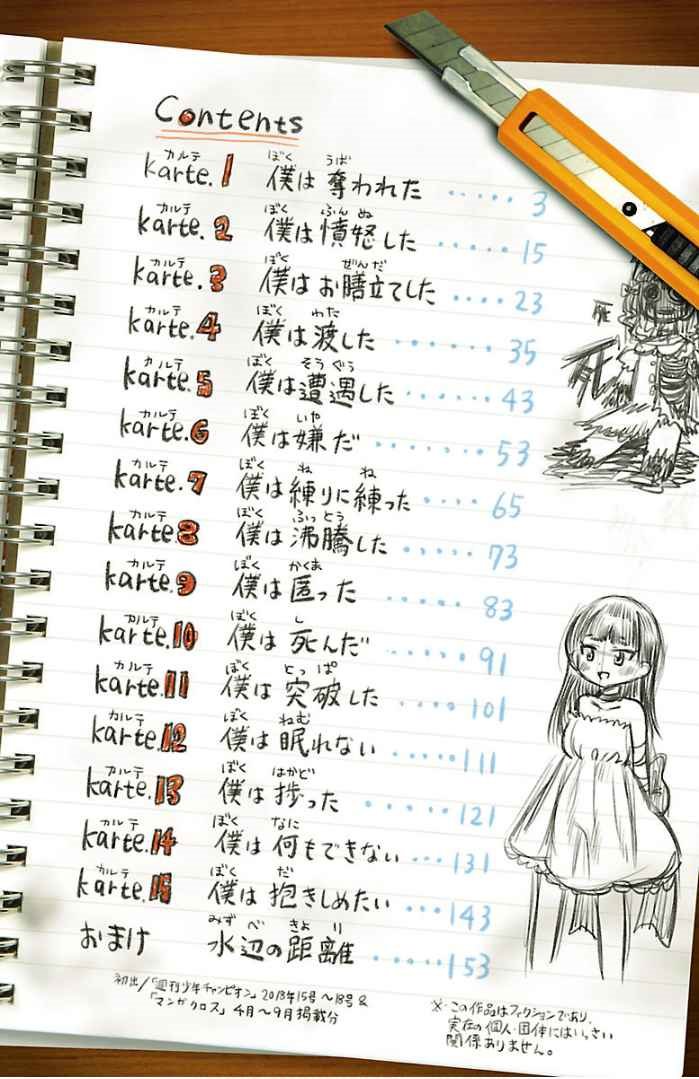 Contents
karte.1 僕は奪われた ····· 3
karte.2 僕は憤怒した ······ 15
karte.3 僕はお膳立てした ···· 23
karte.4 僕は渡した ······· 35
karte.5 僕は遭遇した ······ 43
karte.6 僕は嫌だ ········ 53
karte.7 僕は練りに練った ···· 65
karte.8 僕は沸騰した ····· 73
karte.9 僕は匿った ····· 83
karte.10 僕は死んだ ······ 91
karte.11 僕は突破した ···· 101
karte.12 僕は眠れない ····· 111
karte.13 僕は捗った ······ 121
karte.14 僕は何もできない ··· 131
karte.15 僕は抱きしめたい ··· 143
おまけ 水辺の距離 ····· 153
初出/「週刊少年チャンピオン」2018年15号~18号&
「マンガクロス」4月~9月掲載分
※この作品はフィクションであり、
実在の個人・団体にはいっさい
関係ありません。